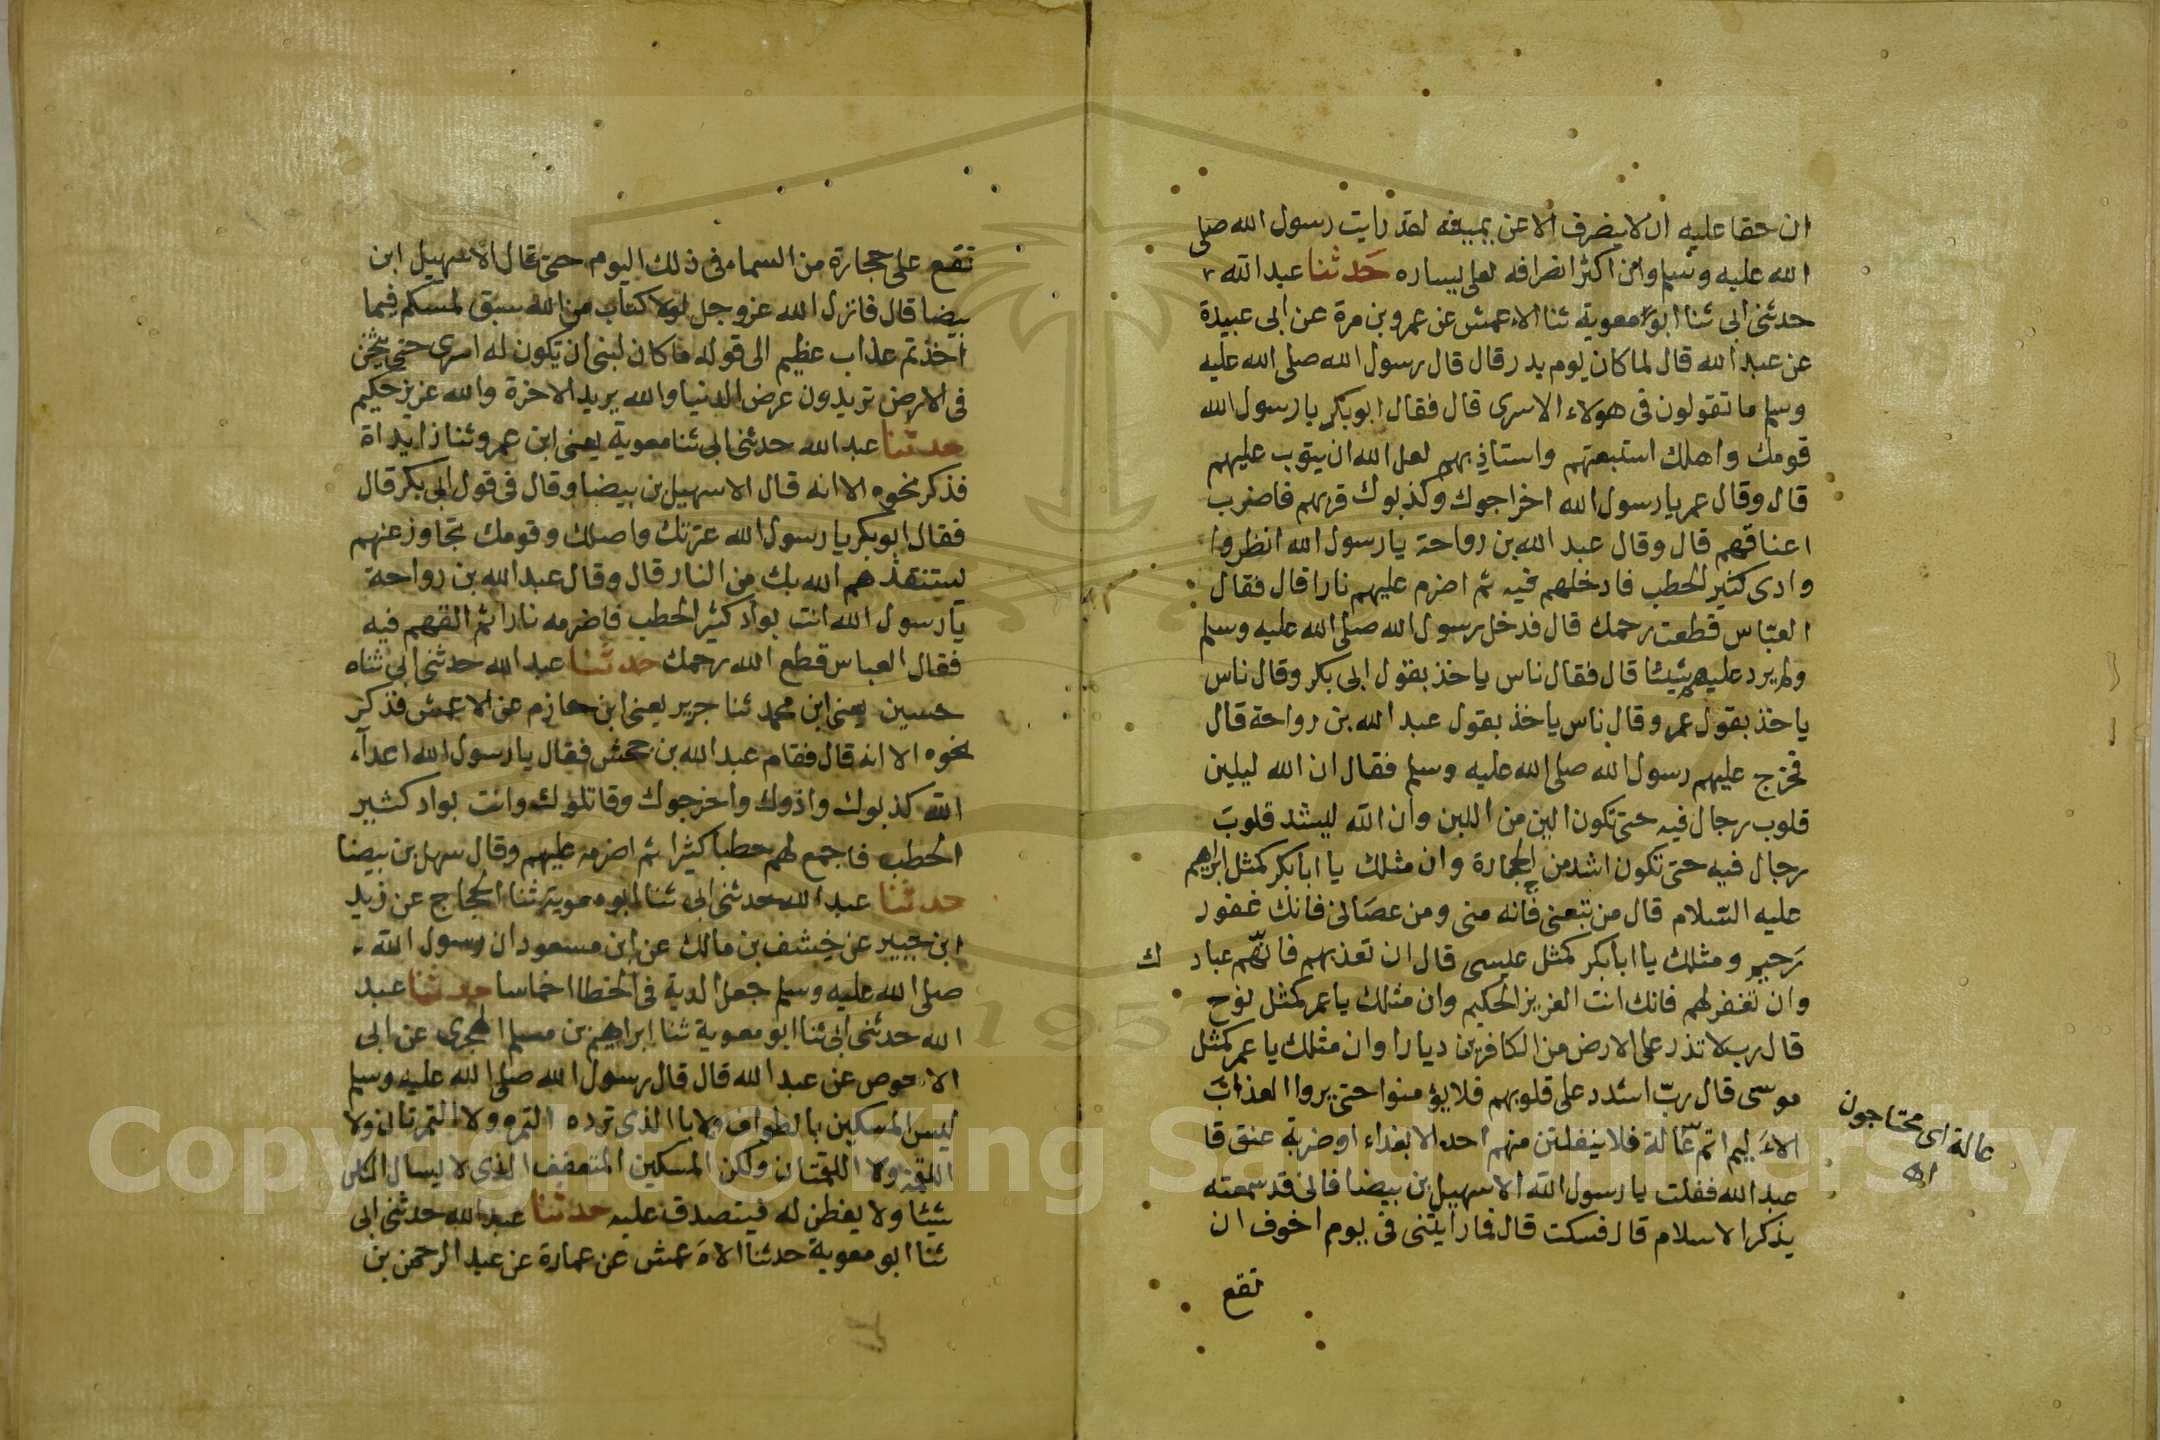 ان حقا عليه ان لا ينصرف الا عن يمينه لقد رايت رسول الله صلى
الله عليه وسلم وان اكثر انصرافه لعلى يساره حدثنا عبد الله
حدثنى ابى ثنا ابو معوية ثنا الاعمش عن عمرو بن مرة عن ابى عبيدة
عن عبد الله قال لما كان يوم بدر قال قال رسول الله صلى الله عليه
وسلم ما تقولون فى هولاء الاسرى قال فقال ابو بكر يا رسول الله
قومك واهلك استبقهم واستاذ بهم لعل الله ان يتوب عليهم
قال وقال عمر يا رسول الله اخرجوك وكذبوك قربهم فاضرب
اعناقهم قال وقال عبد الله بن رواحة يا رسول الله انظر وا
وادى كثير الحطب فادخلهم فيه ثم اضرم عليهم نارا قال فقال
العبّاس قطعت رحمك قال فدخل رسول الله صلى الله عليه وسلم
ولم يرد عليهم شيئا قال فقال ناس ياخذ بقول ابى بكر وقال ناس
ياخذ بقول عمر وقال ناس ياخذ بقول عبد الله بن رواحة قال
فخرج عليهم رسول الله صلى الله عليه وسلم فقال ان الله ليلين
قلوب رجال فيه حتى تكون الين من اللبن وان الله ليشد قلوب
رجال فيه حتى تكون اشد من الحجارة وان مثلك يا ابا بكر كمثل ابراهيم
عليه السّلام قال من تبعنى فانه منى ومن عصانى فانك غفور
رحيم ومثلك يا ابا بكر كمثل عيسى قال ان تعذبهم فانّهم عباد ك
وان تغفر لهم فانك انت العزيز الحكيم وان مثلك يا عمر كمثل نوح
قال رب لا تذر على الارض من الكافرين ديارا وان مثلك يا عمر كمثل
موسى قال ربّ اشدد على قلوبهم فلا يؤمنوا حتى يروا العذاب
الاليم انتم عالة فلا ينفلتن منهم احد الا بفداء او ضربة عنق قا
عبد الله فقلت يا رسول الله الا سهيل بن بيضا فانى قد سمعته
يذكر الاسلام قال فسكت قال فما رايتنى فى يوم اخوف ان
تقع
عالة اى محتاجون
اه
تقع على حجارة من السماء فى ذلك اليوم حتى قال الا سهيل ابن
بيضا قال فانزل الله عز وجل لولا كتاب من الله سبق لمسكم فيما
اخذتم عذاب عظيم الى قوله ما كان لنبى ان يكون له اسرى حتى يثخن
فى الارض تريدون عرض الدنيا والله يريد الاخرة والله عزيز حكيم
حدثنا عبد الله حدثنى ابى ثنا معوية يعنى ابن عمرو ثنا زايداة
فذكر نحوه الا انه قال الا سهيل بن بيضا وقال فى قول ابى بكر قال
فقال ابو بكر يا رسول الله عترتك واصلك وقومك تجاوز عنهم
ليتنقذهم الله بك من النار قال وقال عبد الله بن رواحة
يا رسول الله انت بواد كثير الحطب فاضرمه نارا ثم القهم فيه
فقال العباس قطع الله رحمك حدثنا عبد الله حدثنى ابى ثناه
حسين يعنى ابن محمد ثنا جرير يعنى ابن حازم عن الاعمش فذكر
نحوه الا انه قال فقام عبد الله بن جحش فقال يا رسول الله اعدآء
الله كذبوك واذوك واخرجوك وقاتلوك وانت بواد كثير
الحطب فاجمع لهم حطبا كثيرا ثم اضرمه عليهم وقال سهل بن بيضا
حدثنا عبد الله حدثنى ابى ثنا ابو معوية ثنا الحجاج عن زيد
ابن جبير عن خشف بن مالك عن ابن مسعود ان رسول الله
صلى الله عليه وسلم جعل الدية فى الخطا اخماسا حدثنا عبد
الله حدثنى ابى ثنا ابو معوية ثنا ابراهيم بن مسلم الهجرى عن ابى
الاحوص عن عبد الله قال قال رسول الله صلى الله عليه وسلم
ليس المسكين بالطواف ولا باالذى ترده التمره ولا التمرتان ولا
اللقمة ولا اللقمتان ولكن المسكين المتعفف الذى لا يسال الناس
شيئا ولا يفطن له فيتصدق عليه حدثنا عبد الله حدثنى ابى
ثنا ابو معوية حدثنا الاعمش عن عمارة عن عبد الرحمن بن
Copyright © King Saud University
1957